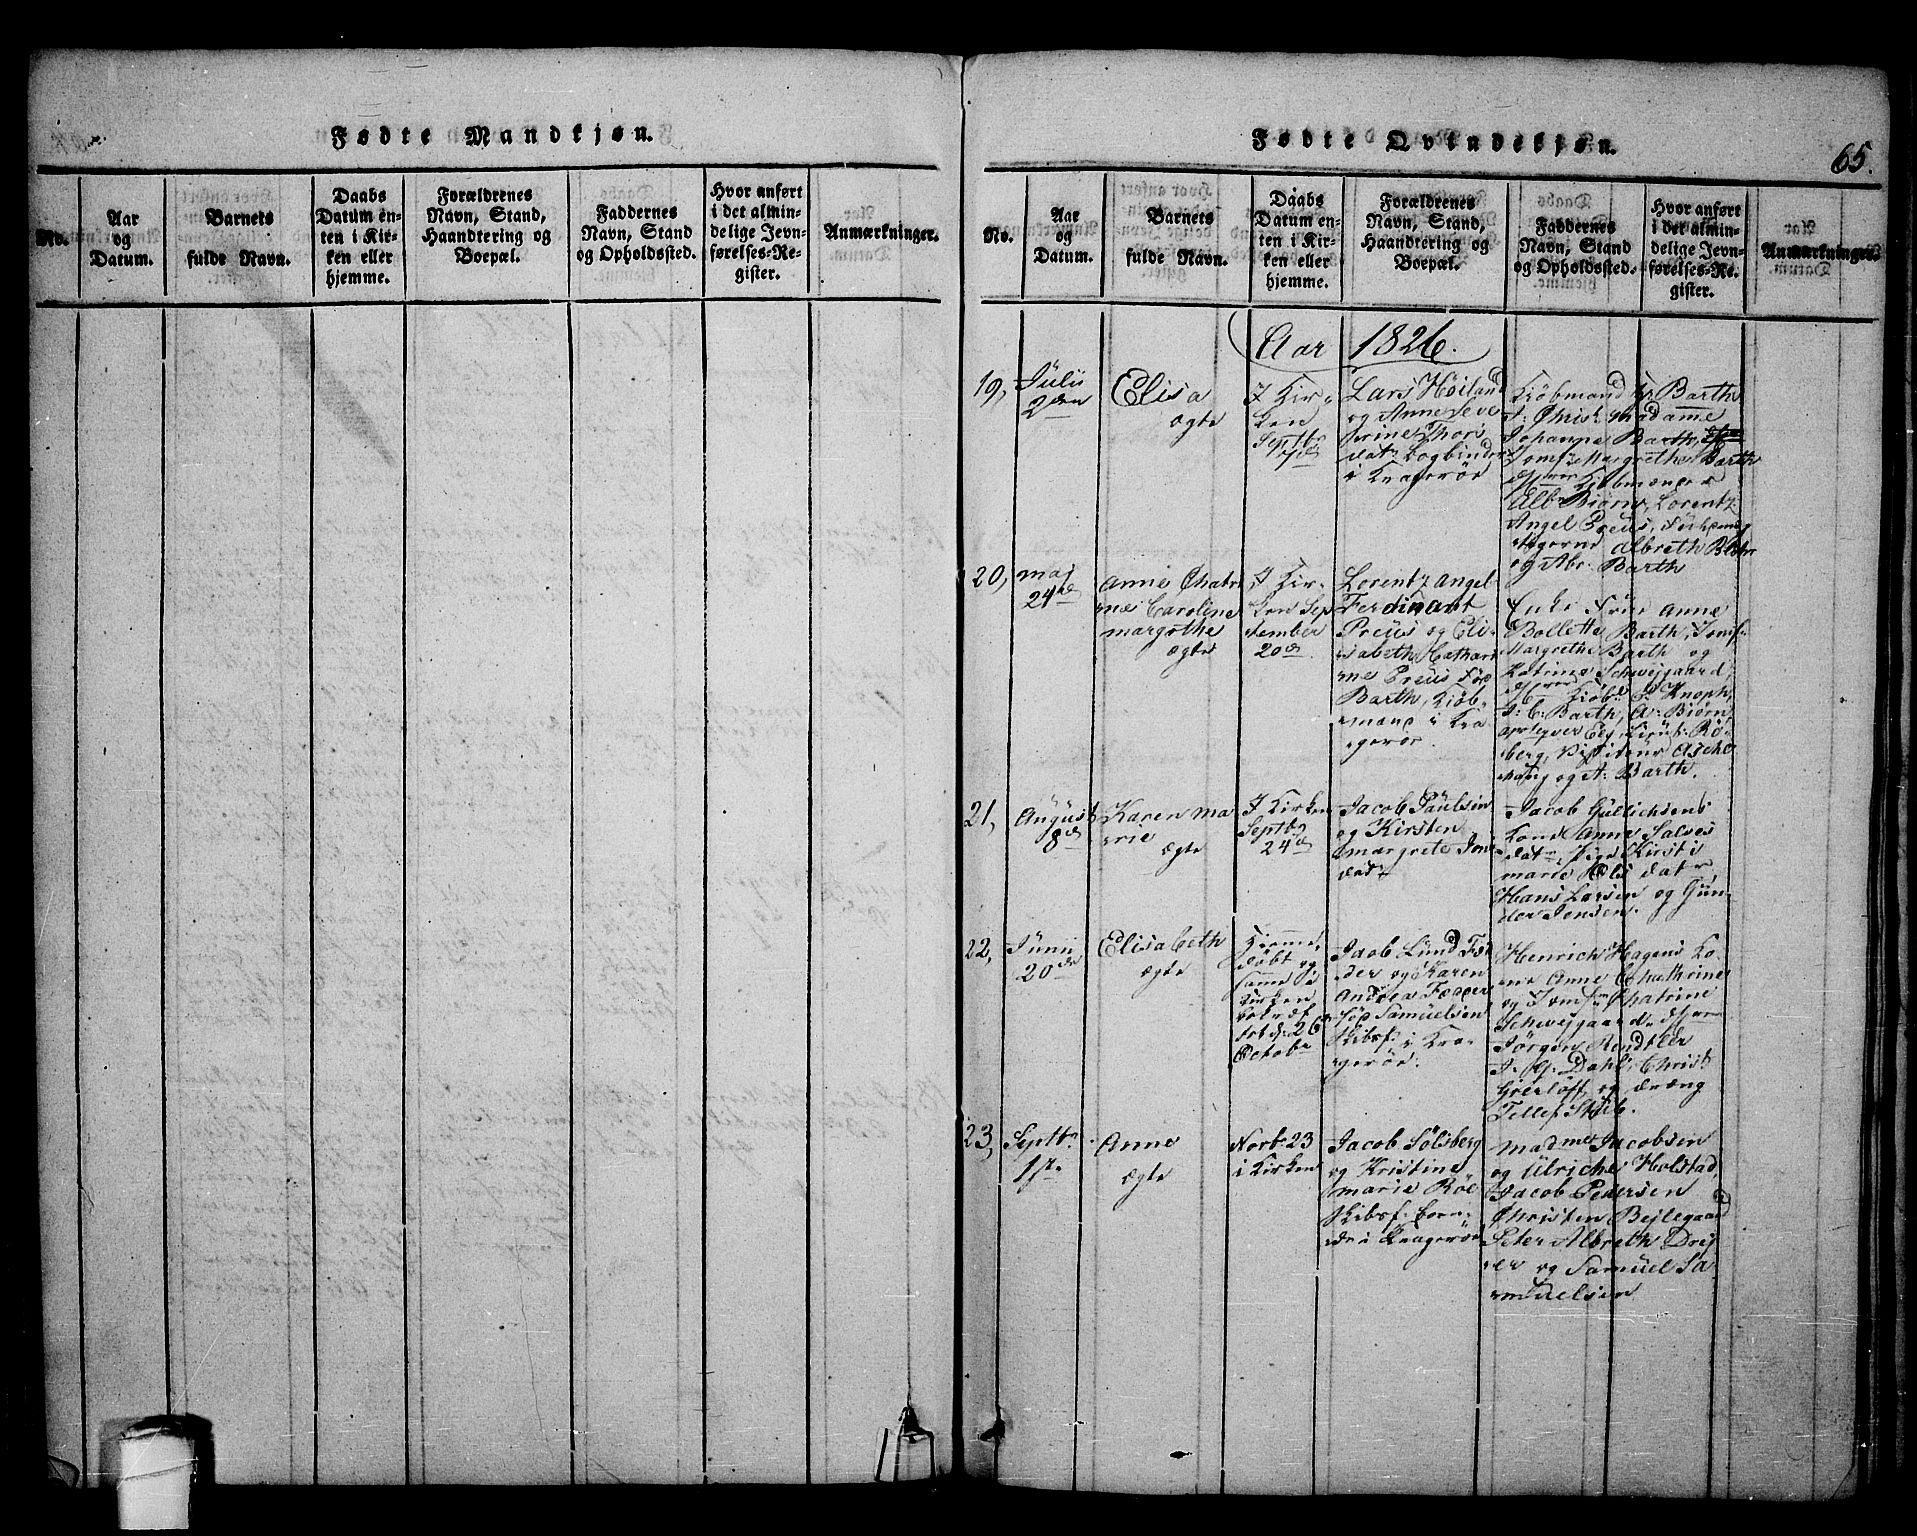 Fødte Mandkjøn.
No.
Aar
og
Datum.
Barnets
fulde Navn.
Daabs
Datum en-
ten i Kir-
ken eller
hjemme.
Forældrenes
Navn, Stand,
Haandtering og
Boepæl.
Faddernes
Navn, Stand
og Opholdssted.
Hvor anført
i det almin-
delige Jevn-
førelses-Re-
gister.
Anmærkninger.
Fødte Qvindekjøn.
65.
No.
Aar
og
Datum.
Barnets
fulde Navn.
Daabs
Datum en-
ten i Kir-
ken eller
hjemme.
Forældrenes
Navn, Stand,
Haandtering og
Boepæl.
Faddernes
Navn, Stand
og Opholdssted.
Hvor anført
i det almin-
delige Jevn-
førelses-Re-
gister.
Anmærkninger.
Aar 1826.
19,
Julii
2den
Elisa
ægte
I Kir-
ken
Septbr
Lars Höiland
og Anne Seve
rine Thors
datr Bogbinder
i Kragerøe
Kiöbmand Barth
Christ: Madame
Johanna Barth,
Jomfr Margrethe Barth
Kiöbmænd
Alb: Biörn, Lorentz
Angel Preus,
Albreth
og Abr. Barth
20,
Maj
24de
Anne Chatri
ne Caroline
Margrethe
ægte
I Kir-
ken Sep
tember
20de
Lorentz Angel
Ferdinant
Preus og Eli-
sabeth Cathari
ne Preus Fød
Barth, Kiöb-
mand i Kra
geröe.
Enke Frue Anne
Bollette Barth, Jomfr
Margrethe Barth og
Katrine Schwejgaard,
Kiöb: P: Knoph,
J: C: Barth, A: Biörn,
berg,
og A: Barth.
21,
August
8de
Karen Ma
rie
ægte
I Kirken
Septbr
24de
Jacob Paulsen
og Kirsten
Margrete Jens
datr
Jacob Gullichsens
Kone Anne Salves
datr, Pige Kirsti
Marie Ols datr
Hans Larsen og Gun-
der Jensen.
22,
Junii
20de
Elisabeth
ægte
Hiemme
döbt og
samme i
Kirken
bekræf
tet d: 26
Octobr
Jacob Lund
og Karen
Andrea
Samuelsen
Skibsf: i Kra-
geröe.
Henrich Hagens Ko-
ne Anne Chathrine
og Jomfr Chatrine
Schwejgaard,
Jörgen Rendtler
J. G: Dahl, Christ
Gverløff, og dræng
Tellef Stub.
23,
Septbr
1ste
Anne
ægte
Novbr 23
i Kirken
Jacob Sölsberg
og Kristine
Marie Röe
Skibsf: boen-
de i Krageröe
Madmer Jacobsen
og Ulriche Holstad,
Jacob Pedersen
Christen Bejlegaard
Peter Albreth Drej
er og Samuel Sa
muelsen